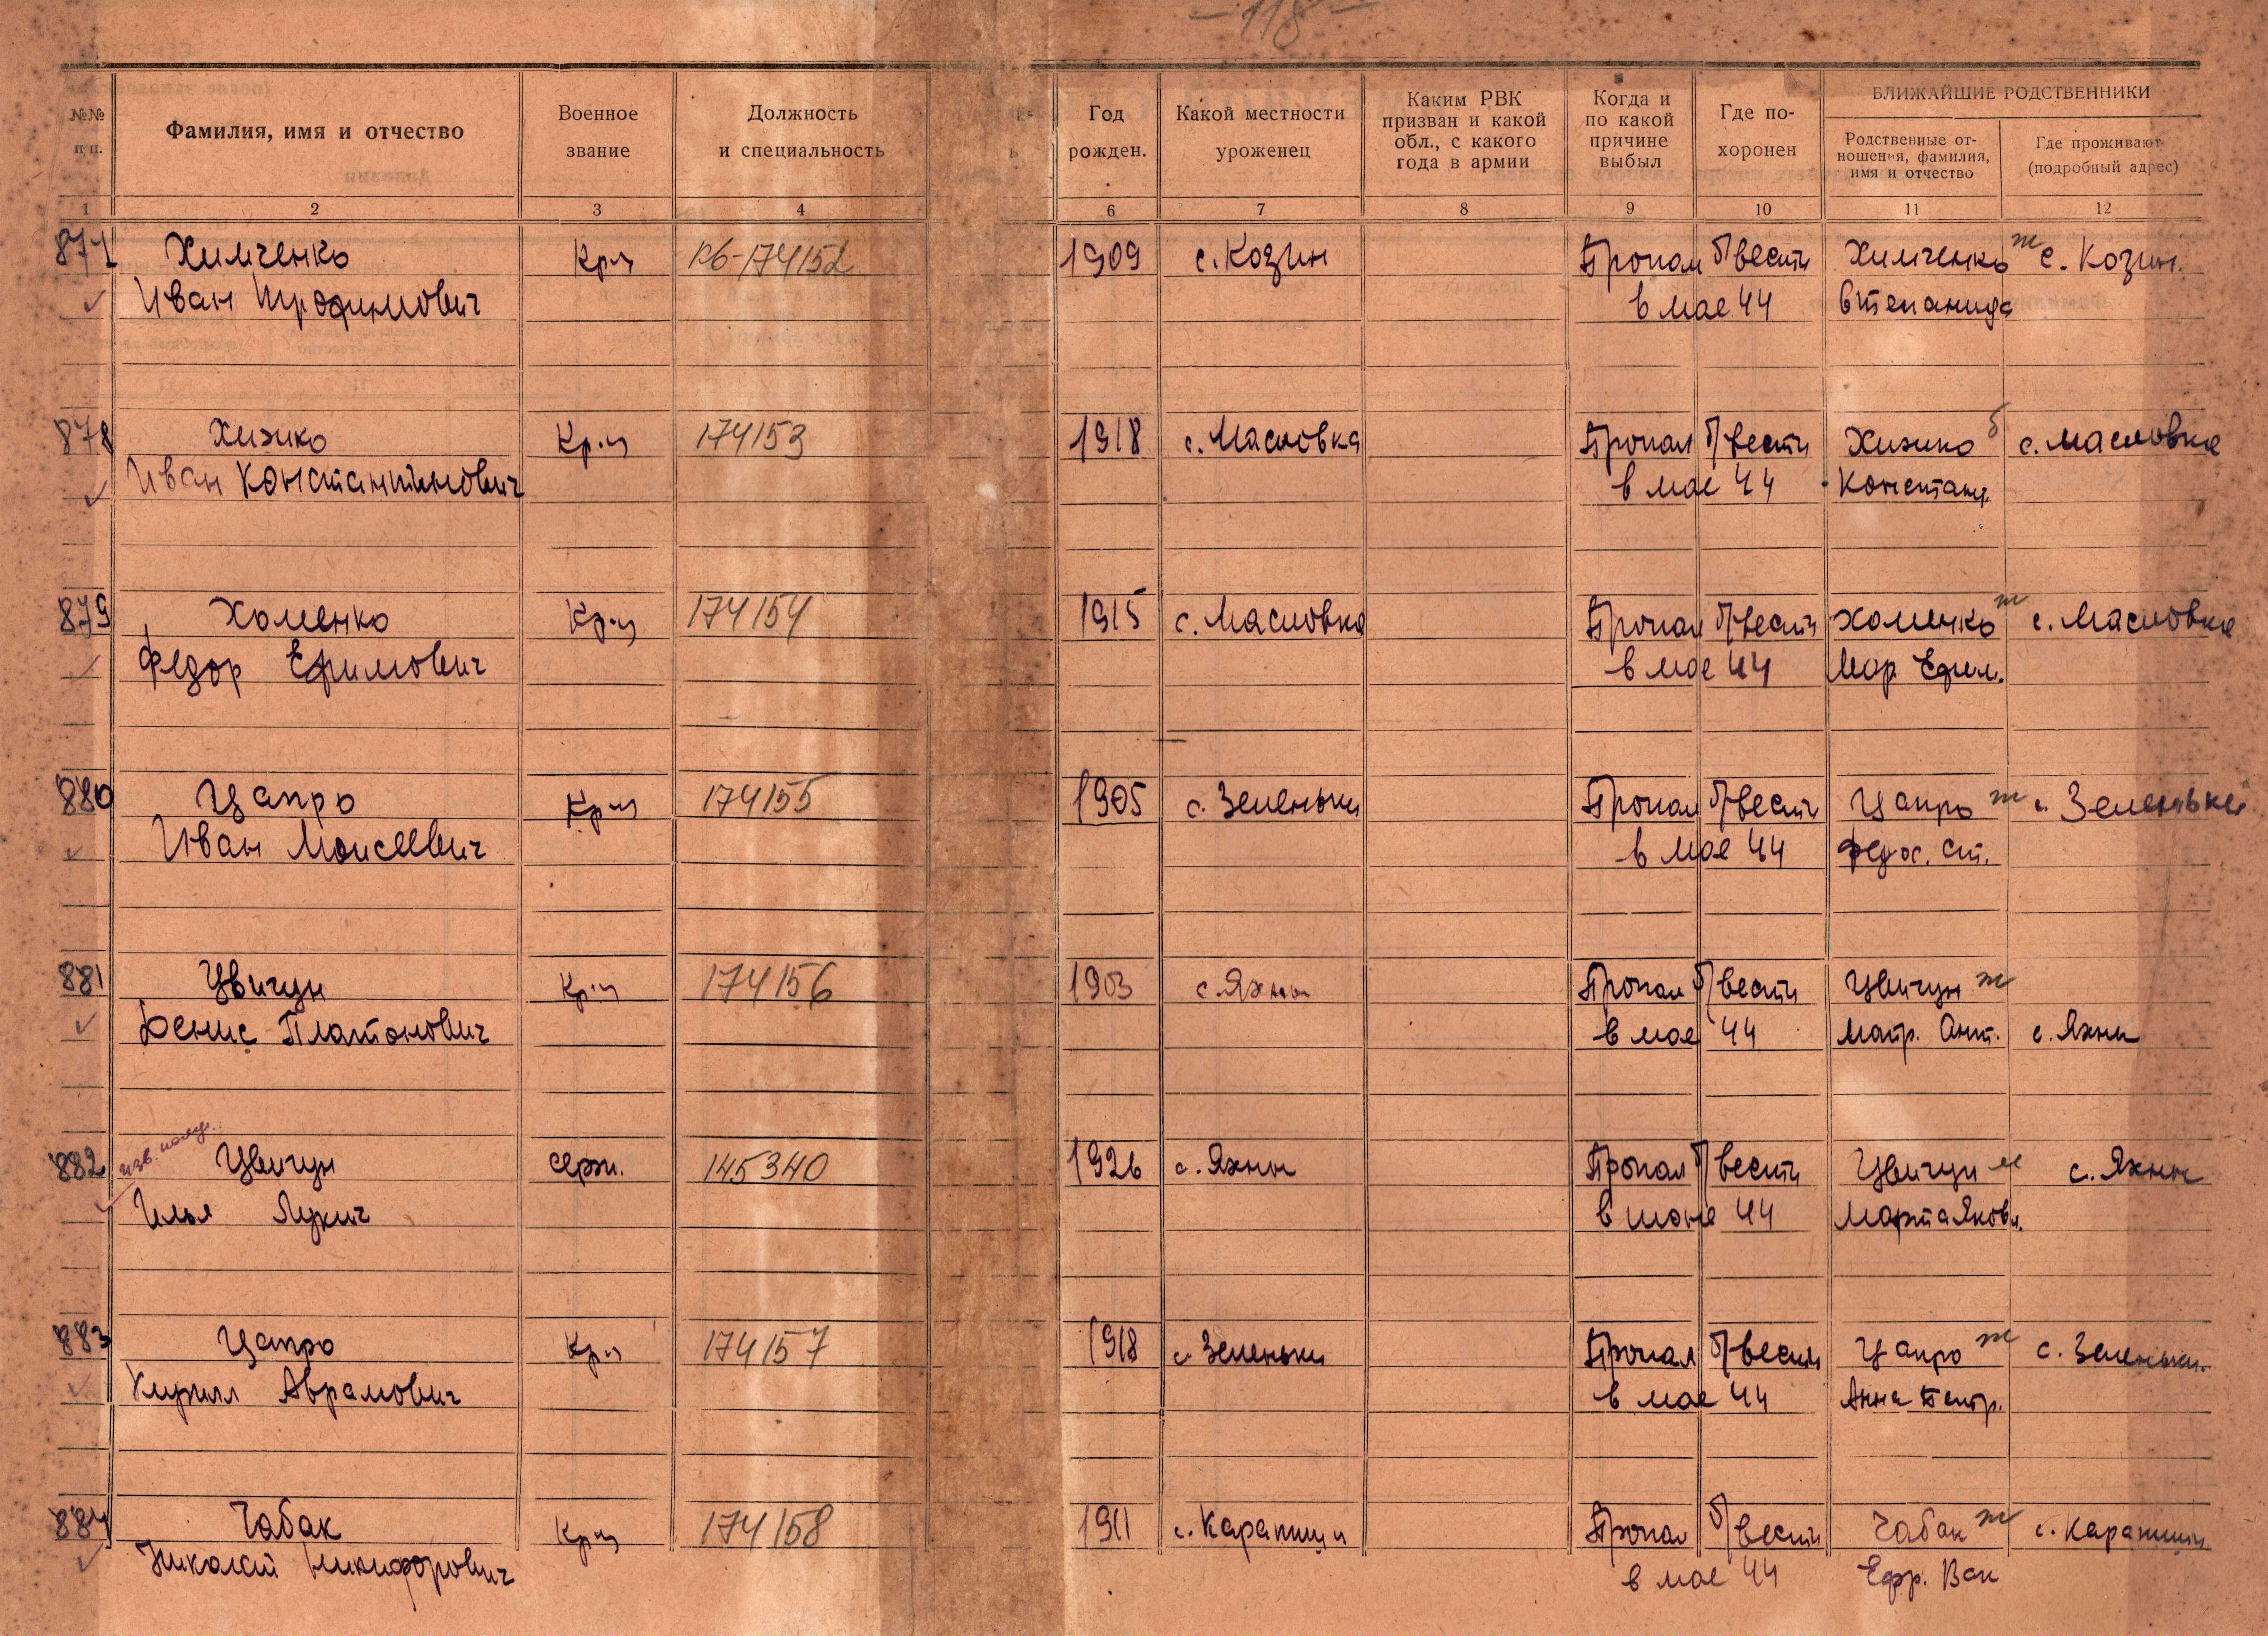 — 118 —
№№ п п.
Фамилия, имя и отчество
Военное звание
Должность и специальность
Год рожден.
Какой местности уроженец
Каким РВК призван и какой обл., с какого года в армии
Когда и по какой причине выбыл
Где по-хоронен
БЛИЖАЙШИЕ РОДСТВЕННИКИ
Родственные от-ношения, фамилия, имя и отчество
Где проживают (подробный адрес)
1 2 3 4 6 7 8 9 10 11 12
877 Химченко Кр-ц Кв-174152 1909 с. Козин Пропал б/вести Химченко ж с. Козин.
Иван Трофимович в мае 44 Степанида
878 Хижко Кр-ц 174153 1918 с. Масловка Пропал б/вести Хижко б с. Масловка
Иван Константинович в мае 44 Констант.
879 Хоменко Кр-ц 174154 1915 с. Масловка Пропал б/вести Хоменко ж с. Масловка
Федор Ефимович в мае 44 Мар. Ефим.
880 Цапро Кр-ц 174155 1905 с. Зеленьки Пропал б/вести Цапро ж с. Зеленьки
Иван Моисеевич в мае 44 Федос. Ст.
881 Цвигун Кр-ц 174156 1903 с. Яхны Пропал б/вести Цвигун ж
Денис Платонович в мае 44 Матр. Ант. с. Яхны
изв. получ.
882 Цвигун серж. 145340 1926 с. Яхны Пропал б/вести Цвигун м с. Яхны
Илья Лукич в июне 44 Марта Яковл.
883 Цапро Кр-ц 174157 1918 с. Зеленьки Пропал б/вести Цапро ж с. Зеленьки.
Кирилл Аврамович в мае 44 Анна Петр.
884 Чабак Кр-ц 174158 1911 с. Карапиши Пропал б/вести Чабак ж с. Карапиши
Николай Никифорович в мае 44 Ефр. Вас